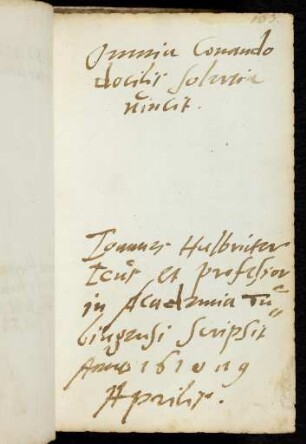 103.
Omnia Conando
docilis solertia
vincit.
Joannes Halbritter
Ictus et professor
in Academia Tü=
bingensi scripsit
Anno 1610 19
Aprilis.